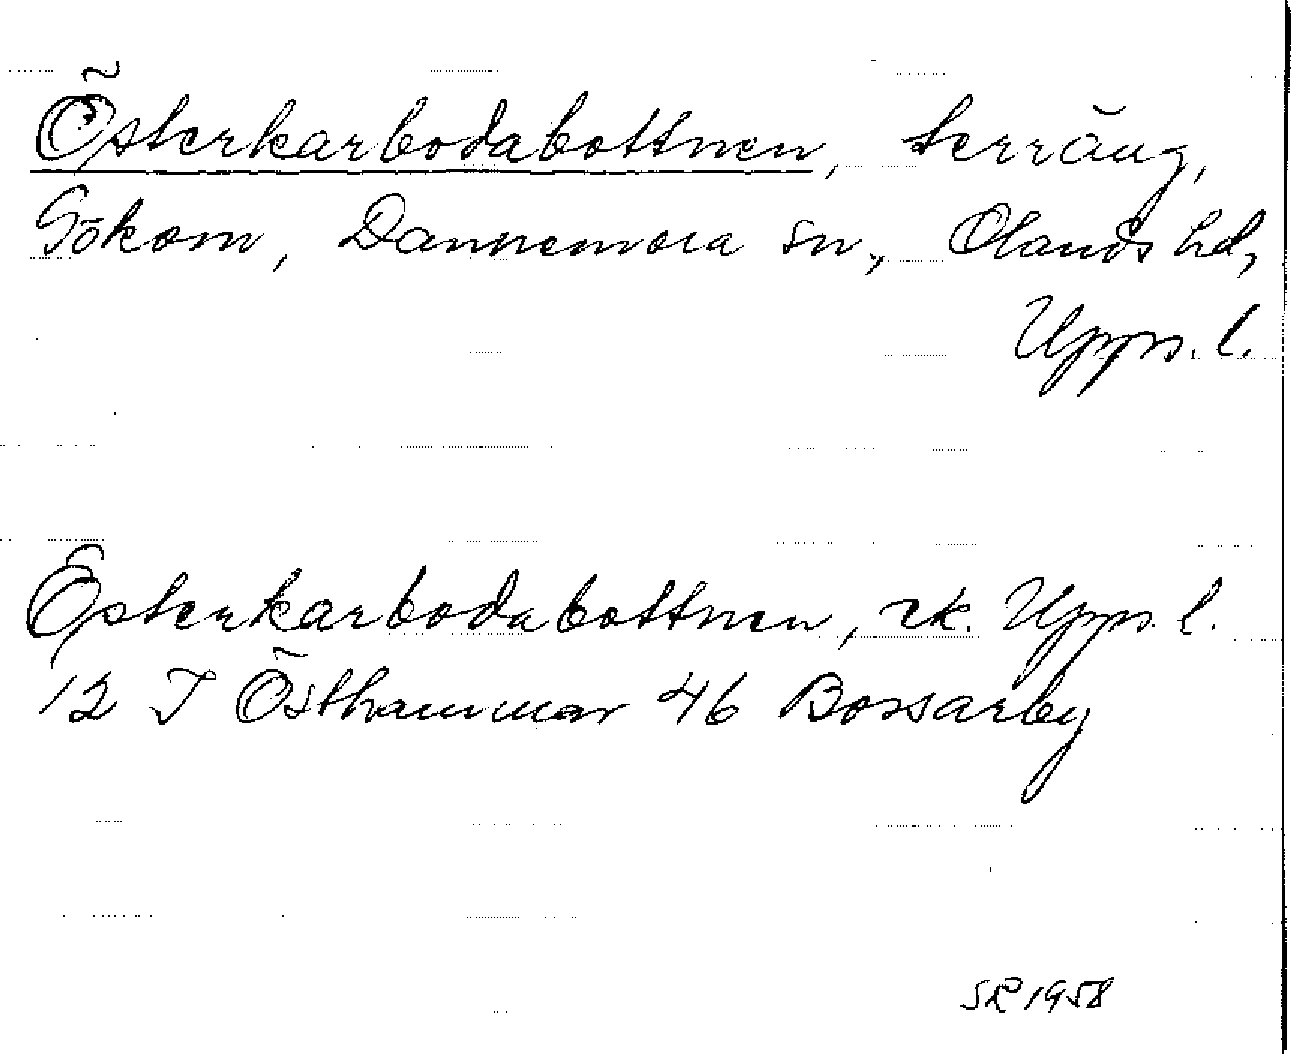 Österkarbodabottnen, terräng,
Gökom, Dannemora sn., Olands hd,
Upps. l.
Österkarbodabottnen, ek. Upps. l.
12 I Östhammar 46 Bossarby
SR 1958